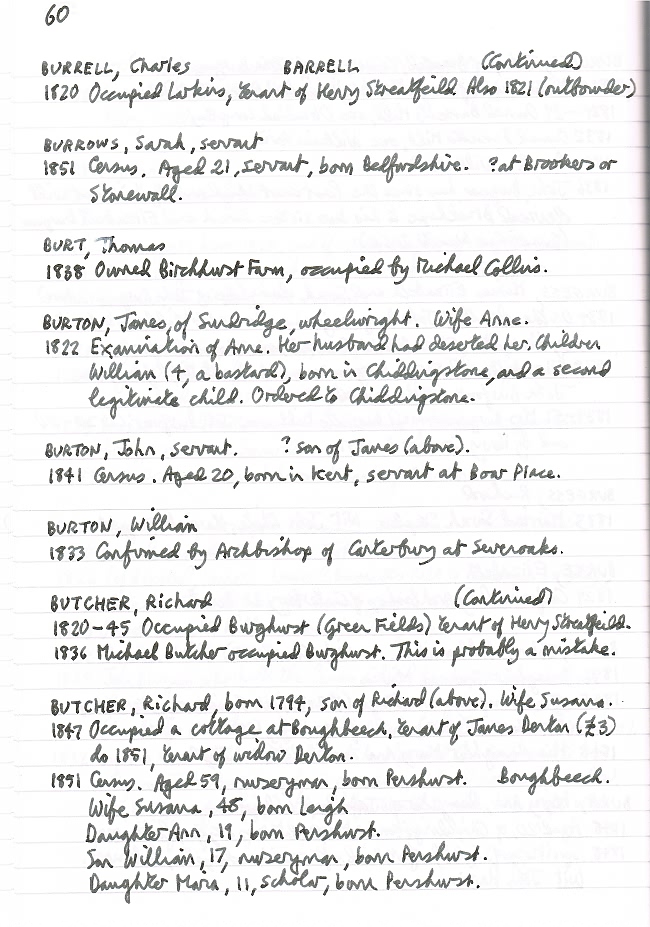 60
BURRELL, Charles BARRELL (Continued)
1820 Occupied Larkins, tenant of Henry Streatfeild. Also 1821 (outbounder)
BURROWS, Sarah, servant
1851 Census. Aged 21, servant, born Bedfordshire. ?at Brookers or
Stonewall.
BURT, Thomas
1838 Owned Birchhurst Farm, occupied by Michael Collins.
BURTON, James, of Sundridge, wheelwright. Wife Anne.
1822 Examination of Anne. Her husband had deserted her. Children
William (4, a bastard), born in Chiddingstone, and a second
legitimate child. Ordered to Chiddingstone.
BURTON, John, servant. ? son of James (above).
1841 Census. Aged 20, born in Kent, servant at Boar Place.
BURTON, William
1833 Confirmed by Archbishop of Canterbury at Sevenoaks.
BUTCHER, Richard (Continued)
1820-45 Occupied Burghurst (Green Fields) tenant of Henry Streatfeild.
1836 Michael Butcher occupied Burghurst. This is probably a mistake.
BUTCHER, Richard, born 1794, son of Richard (above). Wife Susana.
1847 Occupied a cottage at Boughbeech, tenant of James Denton (£3)
do 1851, tenant of widow Denton.
1851 Census. Aged 59, nurseryman, born Penshurst. Boughbeech.
Wife Susana, 48, born Leigh
Daughter Ann, 19, born Penshurst.
Son William, 17, nurseryman, born Penshurst.
Daughter Maria, 11, scholar, born Penshurst.